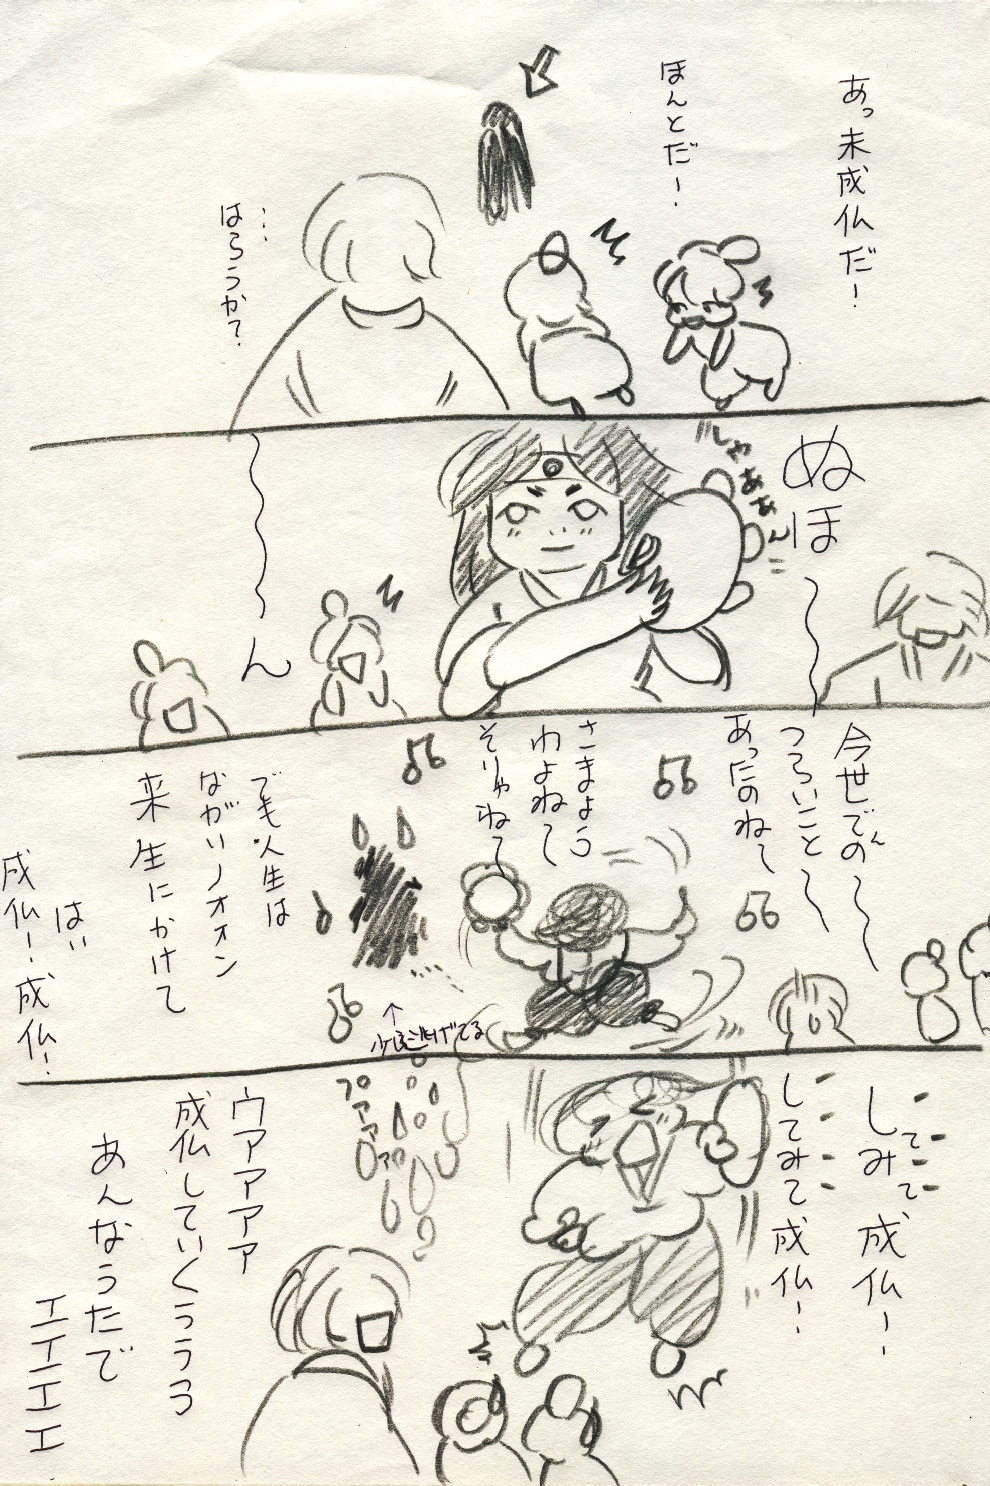 あっ未成仏だ!
ほんとだ!
…はらうか?
ぬほ〜〜ん
しゃああん
今世での〜〜
ん
つらいこと〜〜
あったのね〜
さまよう
わよね〜
そりゃね〜
でも人生は
ながいノオオン
来生にかけて
はい
成仏!成仏!
↑少し逃げてる
してみて成仏ー!
してみて成仏ー!
アアア
ウアアアア
成仏していくううう
あんなうたで
エエエエエ